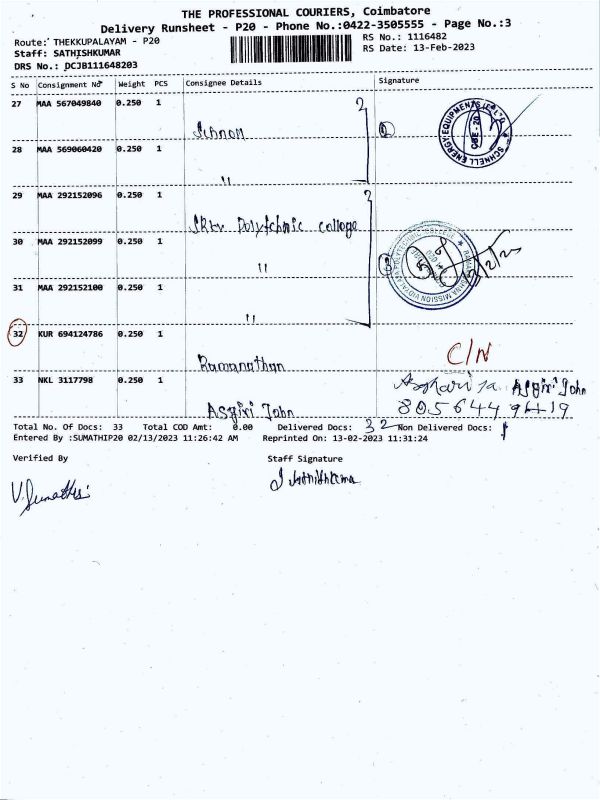 THE PROFESSIONAL COURIERS, Coimbatore
Delivery Runsheet - P20 - Phone No.:0422-3505555 - Page No.:3
Route: THEKKUPALAYAM - P20
RS No.: 1116482
Staff: SATHISHKUMAR
RS Date: 13-Feb-2023
DRS No.: DCJB111648203
S No Consignment No Weight PCS Consignee Details Signature
27 MAA 567049840 0.250 1
SCHNELL ENERGY EQUIPMENTS (P) LTD
CBE - 20
28 MAA 569060420 0.250 1
"
29 MAA 292152096 0.250 1
SRKV Polytchnic college
30 MAA 292152099 0.250 1
"
31 MAA 292152100 0.250 1
"
32 KUR 694124786 0.250 1
Ramanathan
C/N
33 NKL 3117798 0.250 1
Asgiri John
Asgiri John
Total No. Of Docs: 33 Total COD Amt: 0.00 Delivered Docs: 32 Non Delivered Docs: 1
Entered By :SUMATHIP20 02/13/2023 11:26:42 AM Reprinted On: 13-02-2023 11:31:24
Verified By Staff Signature
V. Sumathi